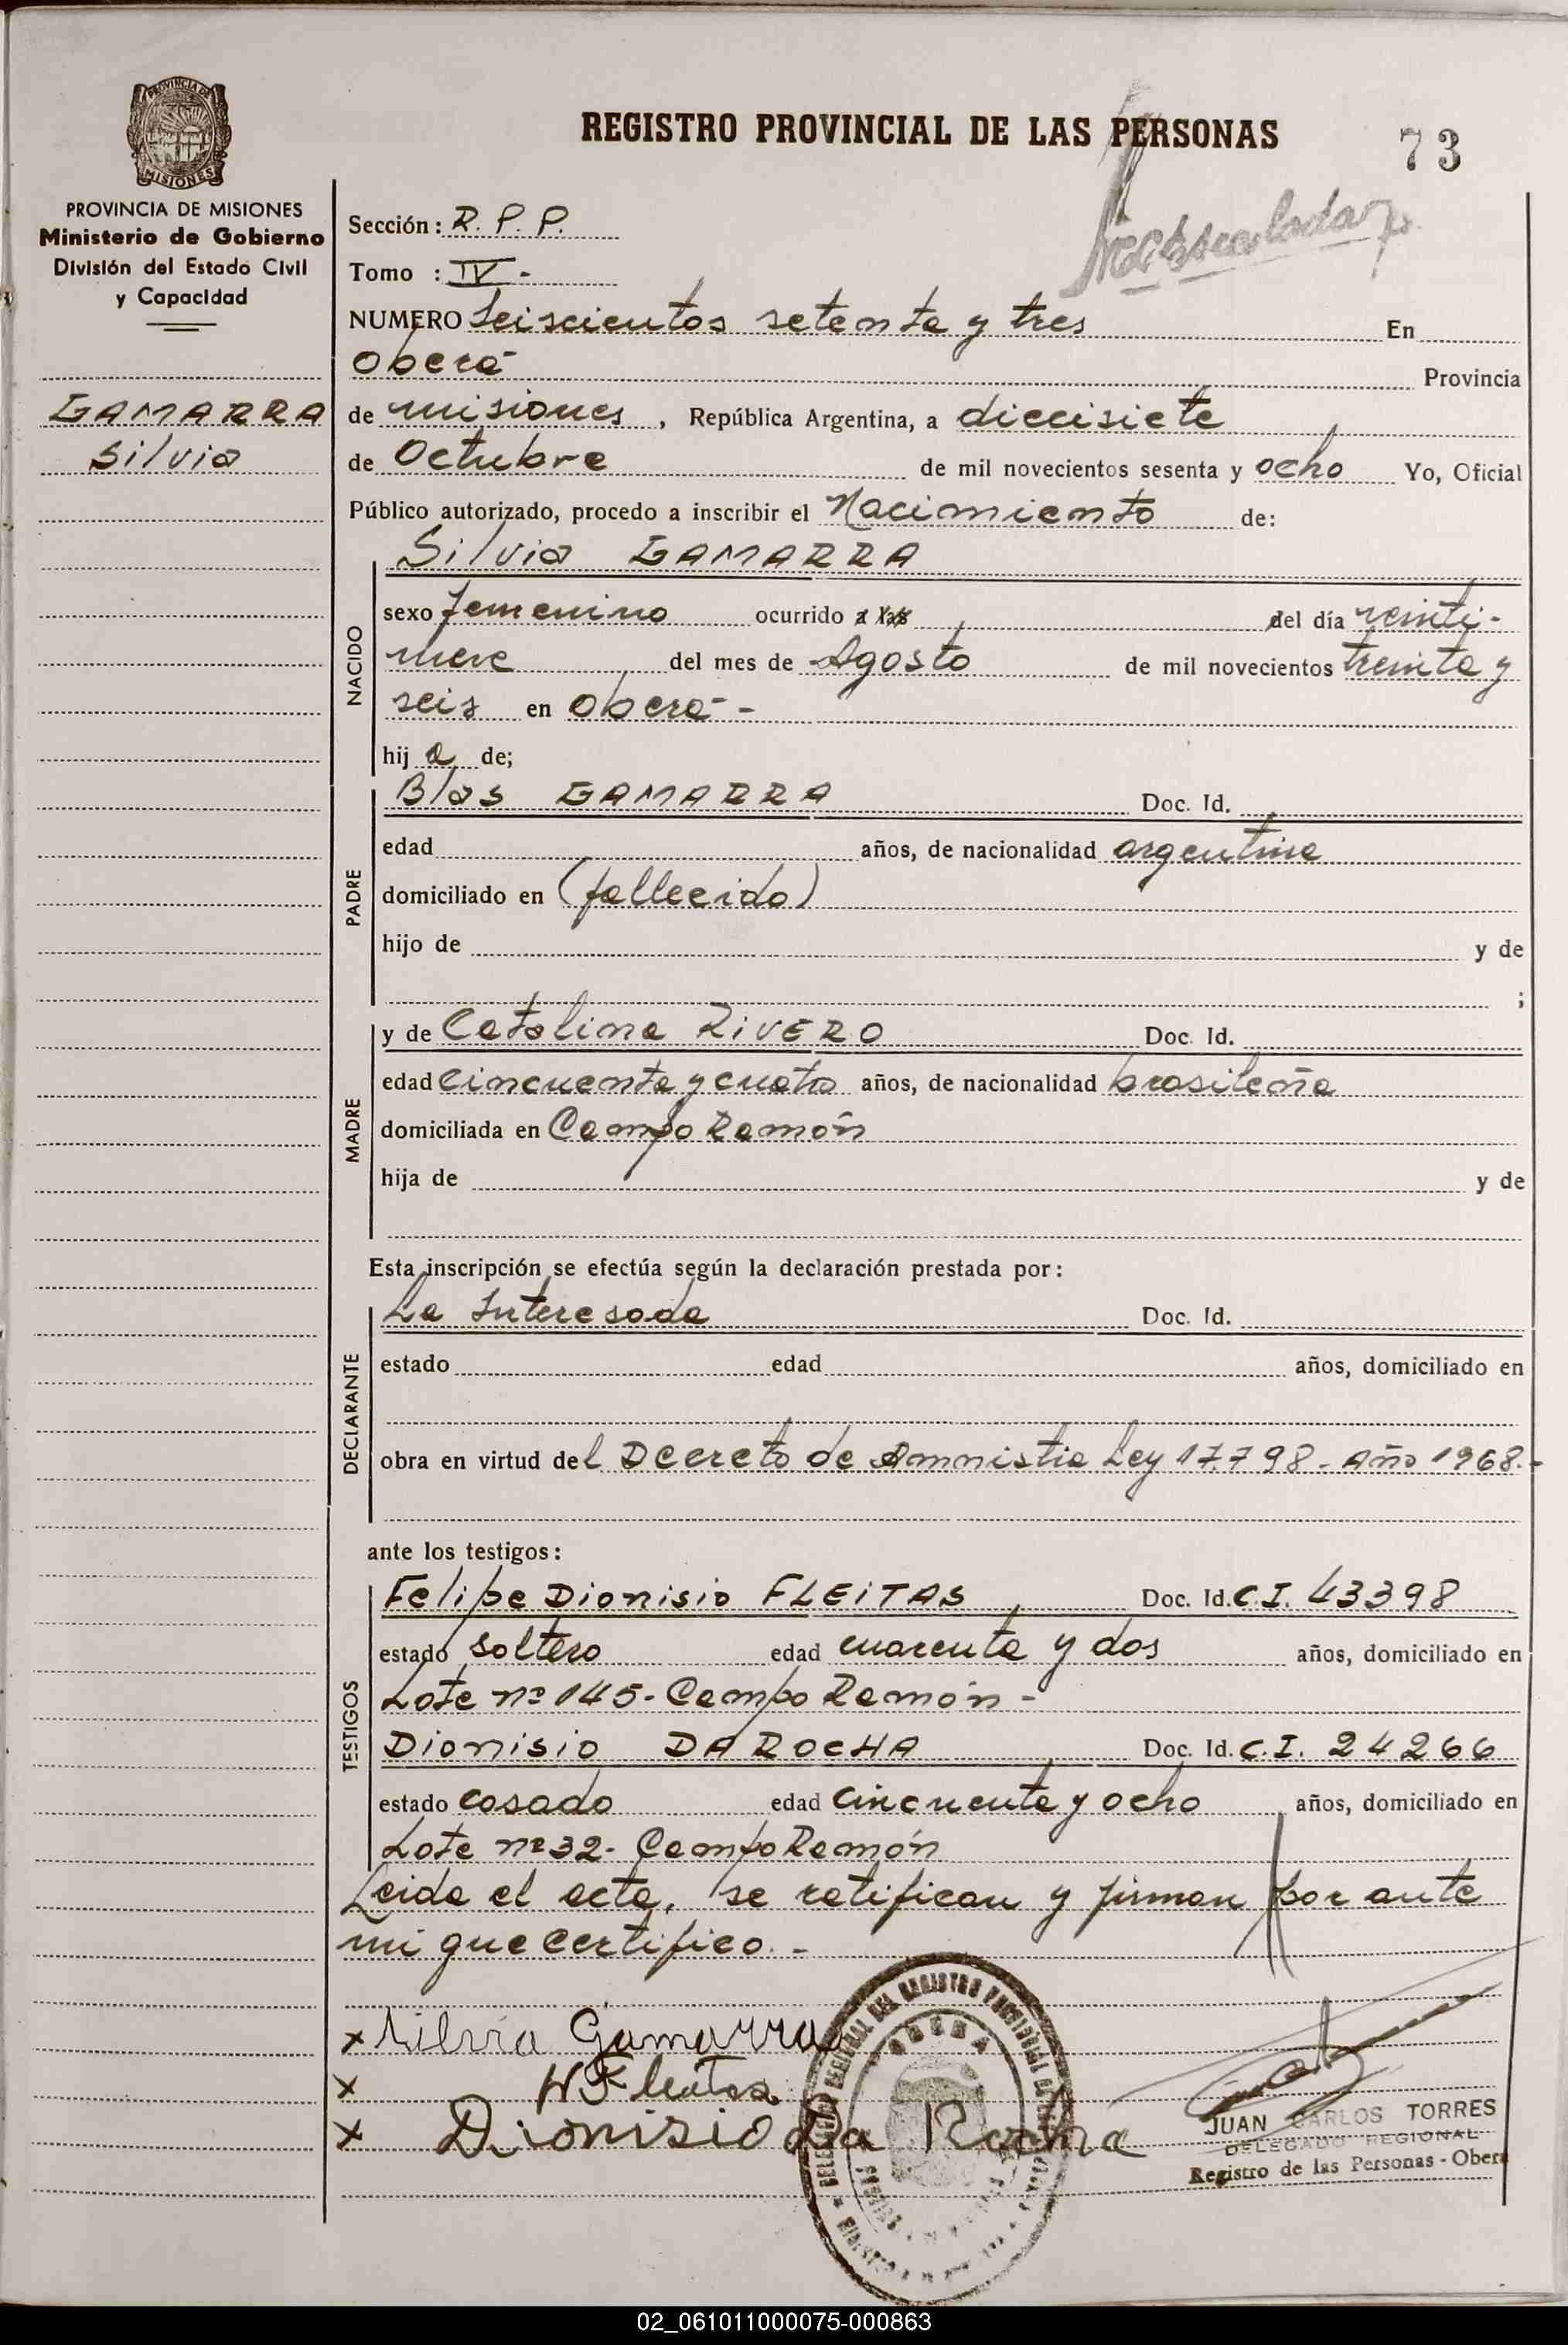 REGISTRO PROVINCIAL DE LAS PERSONAS
73
PROVINCIA DE
MISIONES
PROVINCIA DE MISIONES
Ministerio de Gobierno
División del Estado Civil
y Capacidad
GAMARRA
Silvia
Sección: R. P. P.
Tomo : IV -
NUMERO Seiscientos setenta y tres En
Oberá Provincia
de misiones, República Argentina, a diecisiete
de Octubre de mil novecientos sesenta y ocho Yo, Oficial
Público autorizado, procedo a inscribir el Nacimiento de:
Silvia GAMARRA
NACIDO
sexo femenino ocurrido a las del día veinti-
nueve del mes de Agosto de mil novecientos treinta y
seis en Oberá -
hij a de;
PADRE
Blas GAMARRA Doc. Id.
edad años, de nacionalidad argentina
domiciliado en (fallecido)
hijo de y de
;
MADRE
y de Catalina RIVERO Doc. Id.
edad cincuenta y cuatro años, de nacionalidad brasileña
domiciliada en Campo Ramón
hija de y de
Esta inscripción se efectúa según la declaración prestada por:
DECLARANTE
La Interesada Doc. Id.
estado edad años, domiciliado en
obra en virtud del Decreto de Amnistia Ley 17.798 - Año 1968.-
ante los testigos:
TESTIGOS
Felipe Dionisio FLEITAS Doc. Id. C.I. 43398
estado soltero edad cuarenta y dos años, domiciliado en
Lote nº 145 - Campo Ramón -
Dionisio DA ROCHA Doc. Id. C.I. 24266
estado casado edad cincuenta y ocho años, domiciliado en
Lote nº 32 - Campo Ramón
Leida el acta, se ratifican y firman por ante
mi que certifico. -
x Silvia Gamarra
x
x Dionisio Da Rocha
OBERA
JUAN CARLOS TORRES
DELEGADO REGIONAL
Registro de las Personas - Oberá
02_061011000075-000863